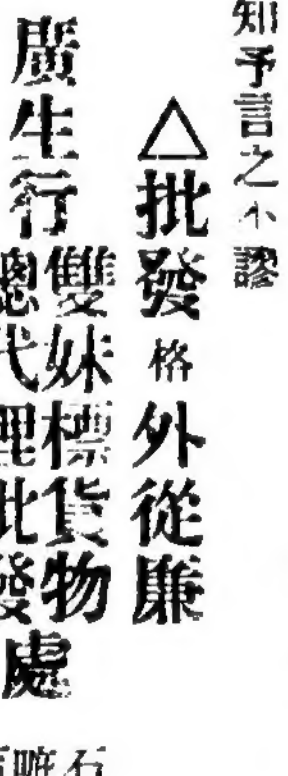 知予言之不謬
△批發格外從廉
廣生行
雙妹標貨物
總代理批發處
石